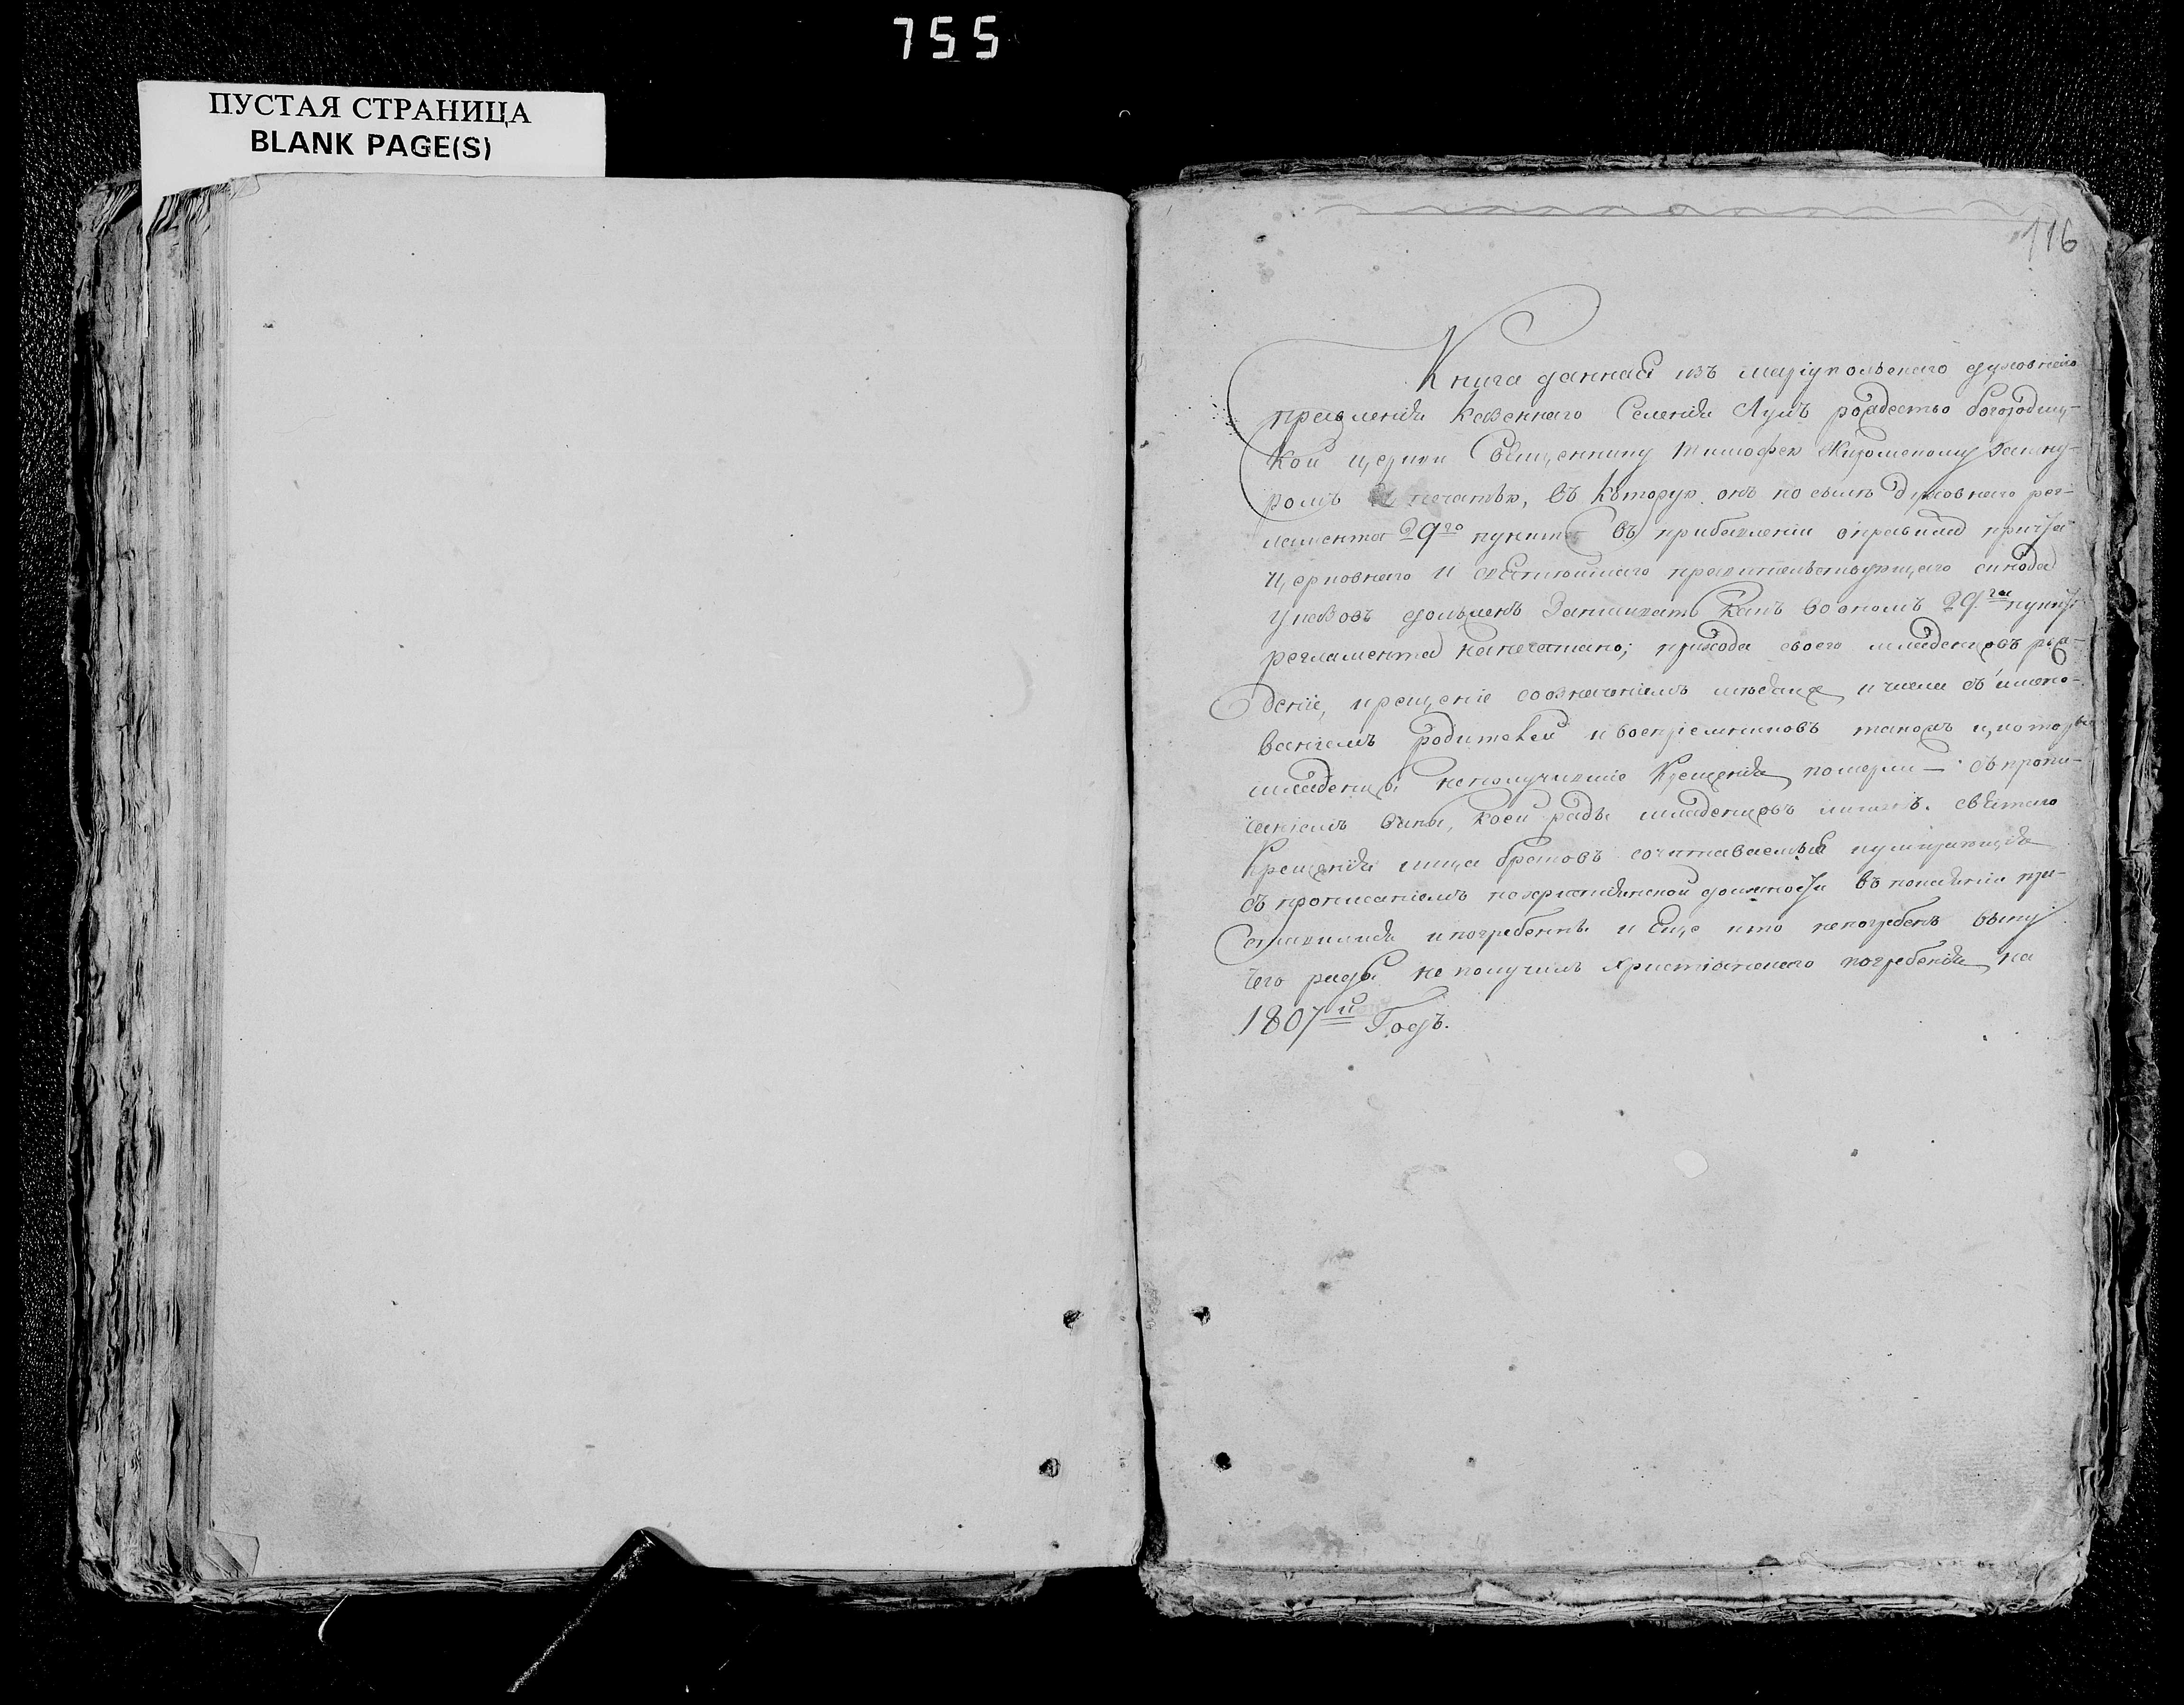 755
ПУСТАЯ СТРАНИЦА
BLANK PAGE(S)
116
Книга данная изъ маріупольскаго духовнаго
правленія казеннаго Селенія рождество богородиц-
кой церкви Священнику Тимофею за шну-
ромъ печатью, въ которую онъ по силѣ духовнаго рег-
ламента 29го пункта въ прибавленіи о правилах причта
церковнаго и святѣйшаго правительствующаго синода
указовъ долженъ записывать какъ во ономъ 29мъ пункте
регламента напечатано; прихода своего младенцовъ рож-
деніе, крещеніе со означеніемъ месяца и числа съ имено-
ваніемъ родителей и воспріемниковъ такожъ и которые
младенцы неполучившіе Крещенія померли — съ пропи-
саніемъ вины, коей ради младенцовъ лишенъ святаго
Крещенія лица браковъ сочитаваемыя и умирающія
съ прописаніемъ по христіянской должности въ покаяніи пре-
ставилися и погребенны и Еще кто непогребенъ вину
чего ради не получилъ христіанскаго погребенія на
1807й Годъ.